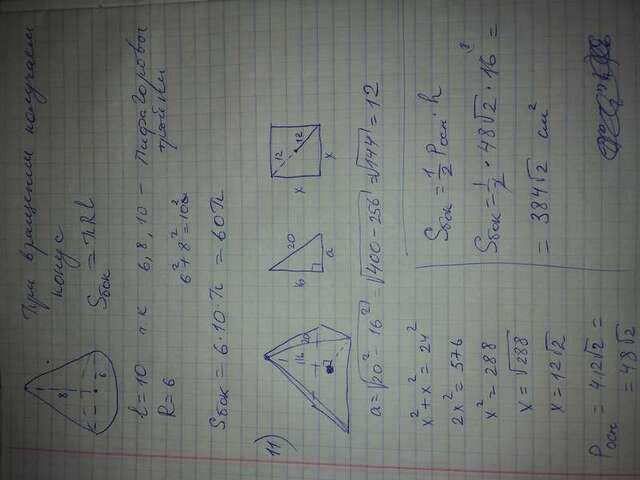 При вращении получаем
конус
Sбок = πRl
8
6
l = 10 т.к 6, 8, 10 – Пифагоровы
тройки
R = 6
6² + 8² = 10²
Sбок = 6 · 10 · π = 60π
11)
16
20
16
20
a
12
12
x
x
a = √20² – 16² = √400 – 256 = √144 = 12
x² + x² = 24²
2x² = 576
x² = 288
x = √288
x = 12√2
Pосн = 4·12√2 =
= 48√2
Sбок = 1/2 Pосн · h
Sбок = 1/2 · 48√2 · 16 =
8
= 384√2 см²